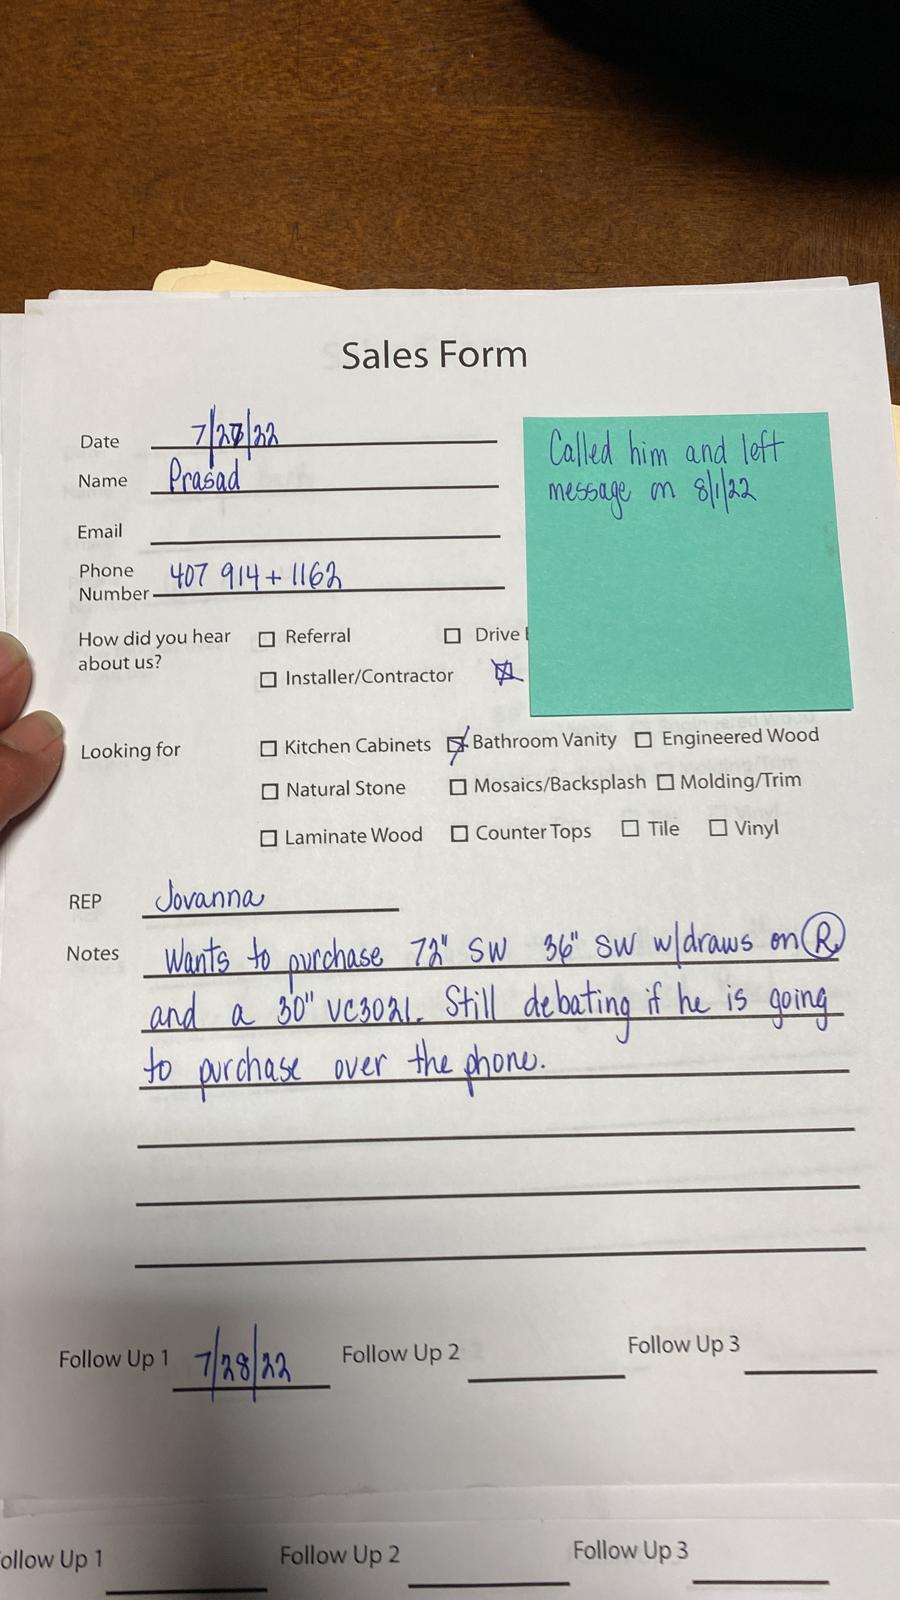 Sales Form
Date 7/27/22
Name Prasad
Email
Phone
Number 407 914+1162
Called him and left
message on 8/1/22
How did you hear
about us?
Referral
Drive
Installer/Contractor
Looking for
Kitchen Cabinets Bathroom Vanity Engineered Wood
Natural Stone Mosaics/Backsplash Molding/Trim
Laminate Wood Counter Tops Tile Vinyl
REP Jovanna
Notes Wants to purchase 72" SW 36" SW w/draws on R
and a 30" VC3021. Still debating if he is going
to purchase over the phone.
Follow Up 1 7/28/22 Follow Up 2 Follow Up 3
ollow Up 1 Follow Up 2 Follow Up 3